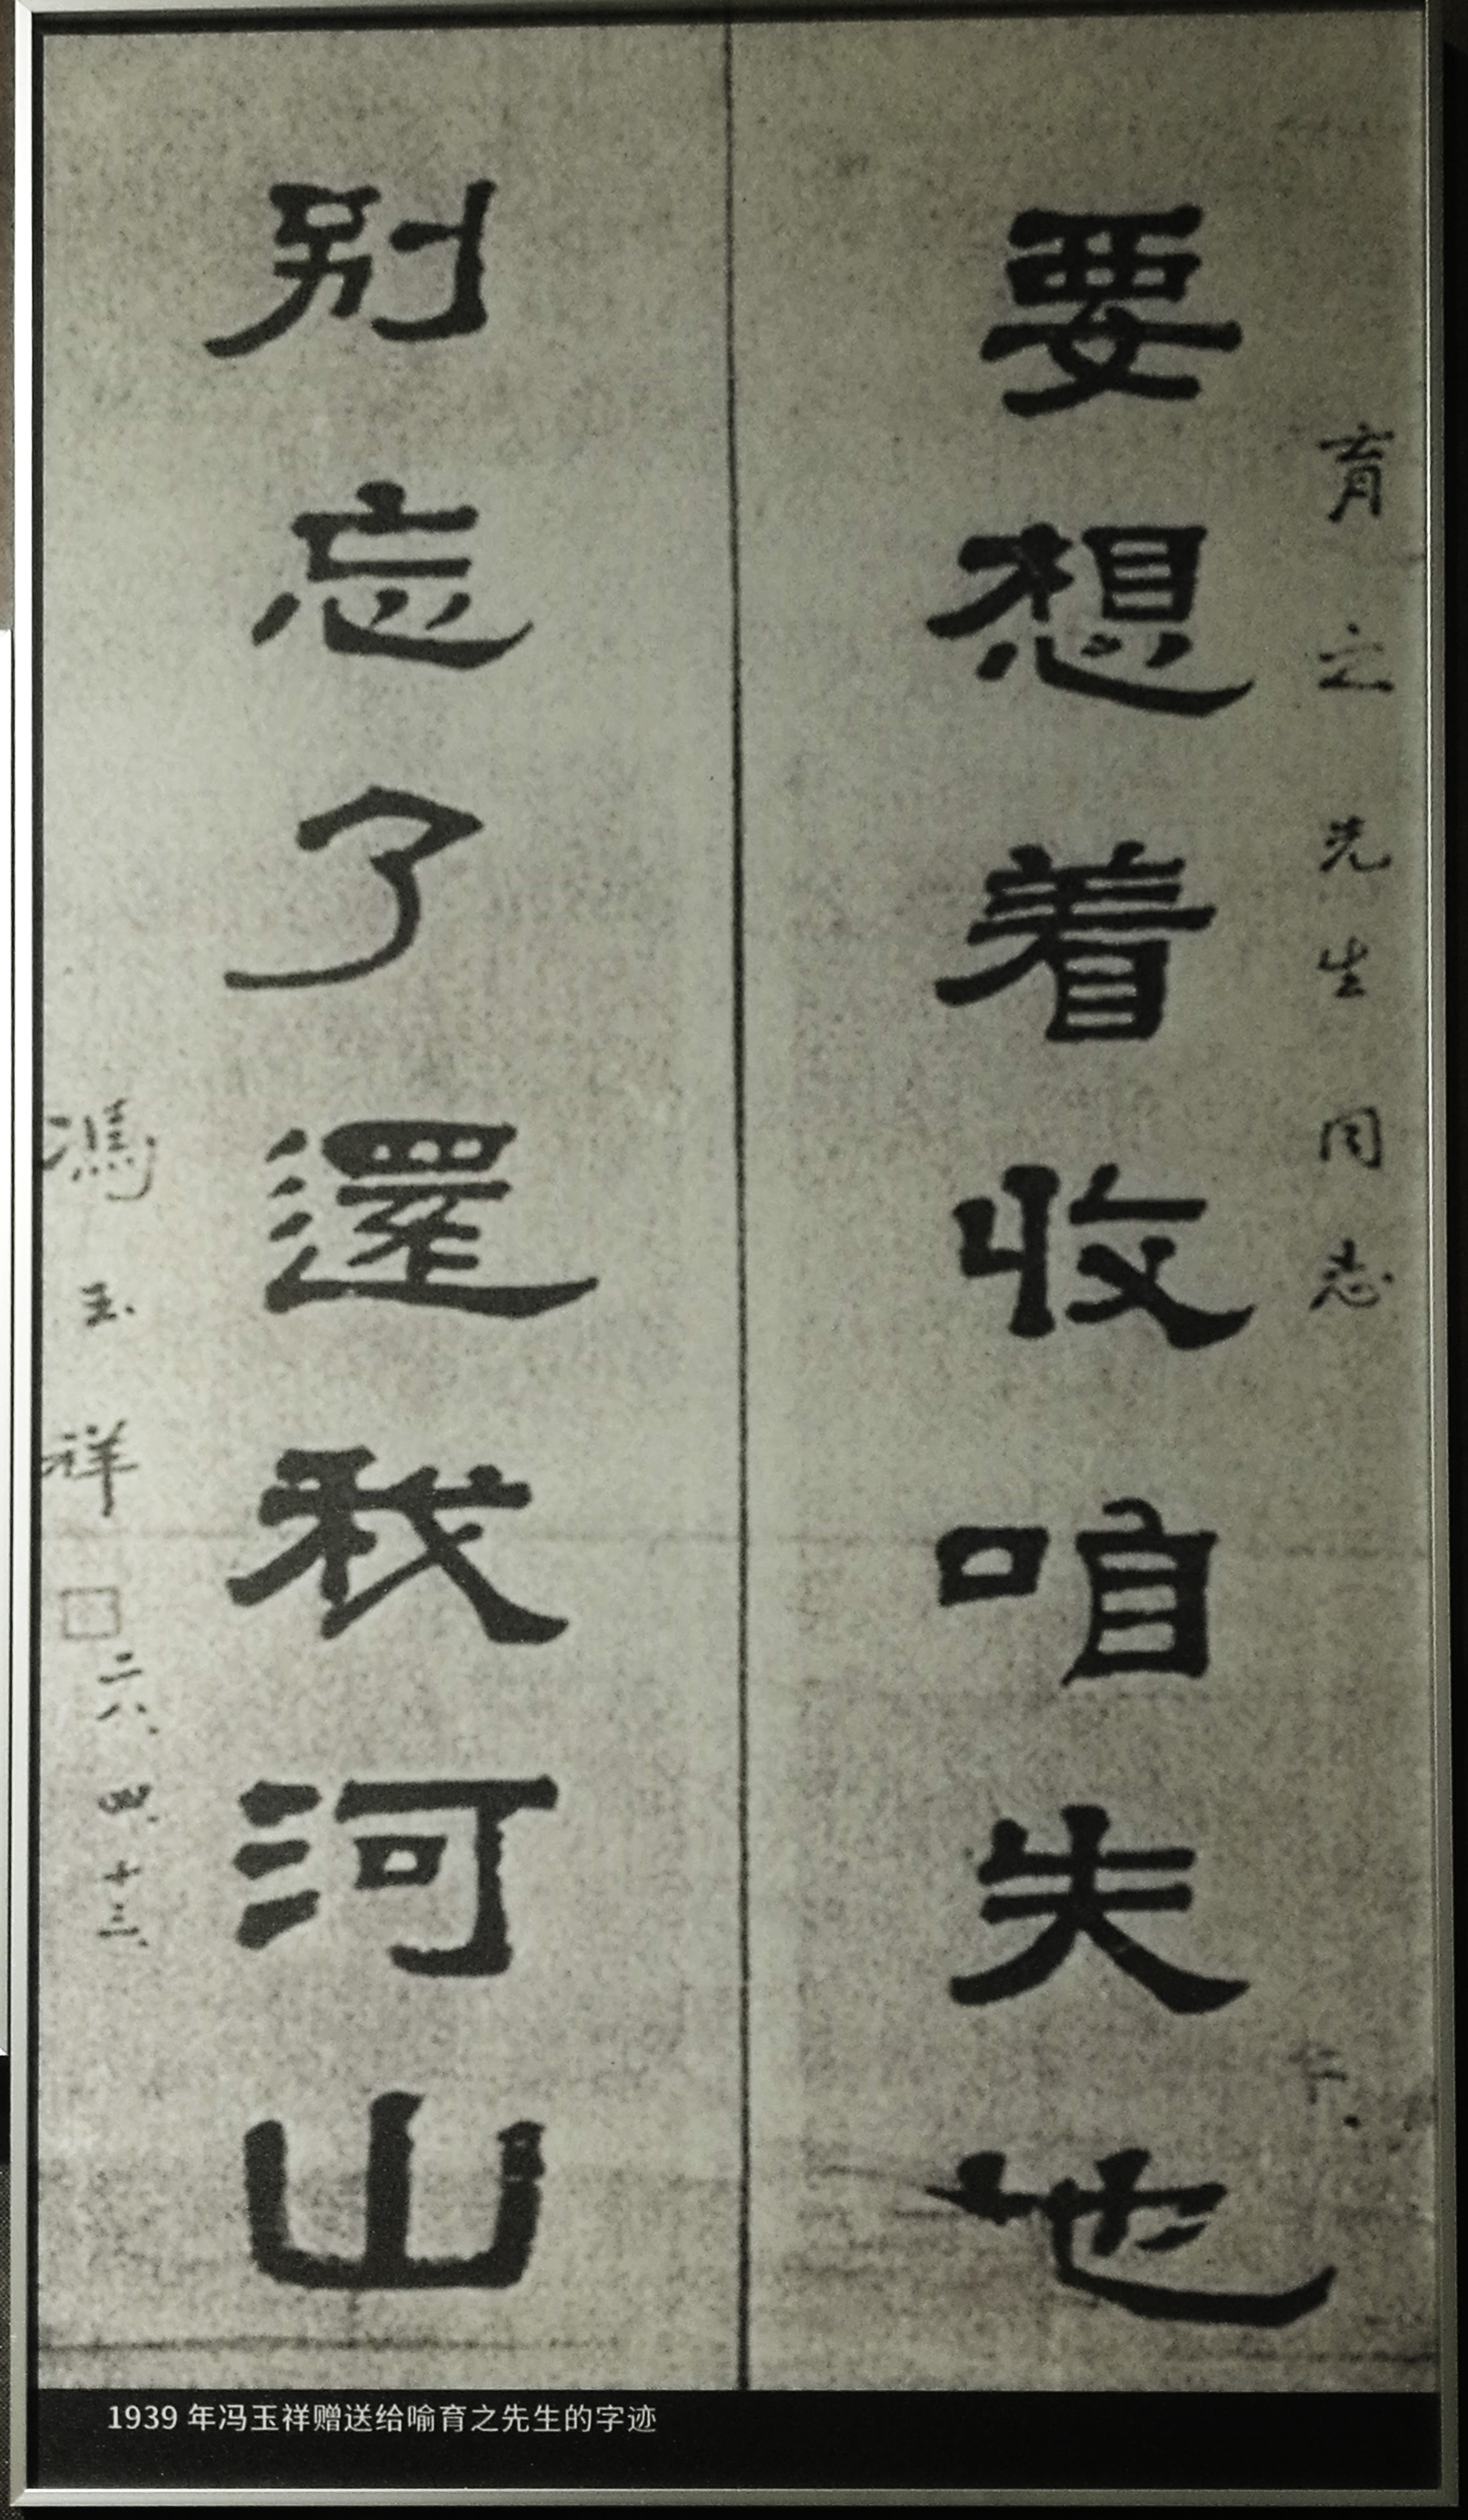 育之先生同志
要想着收咱失地
别忘了還我河山
馮玉祥
二八、四、十三、
1939 年冯玉祥赠送给喻育之先生的字迹